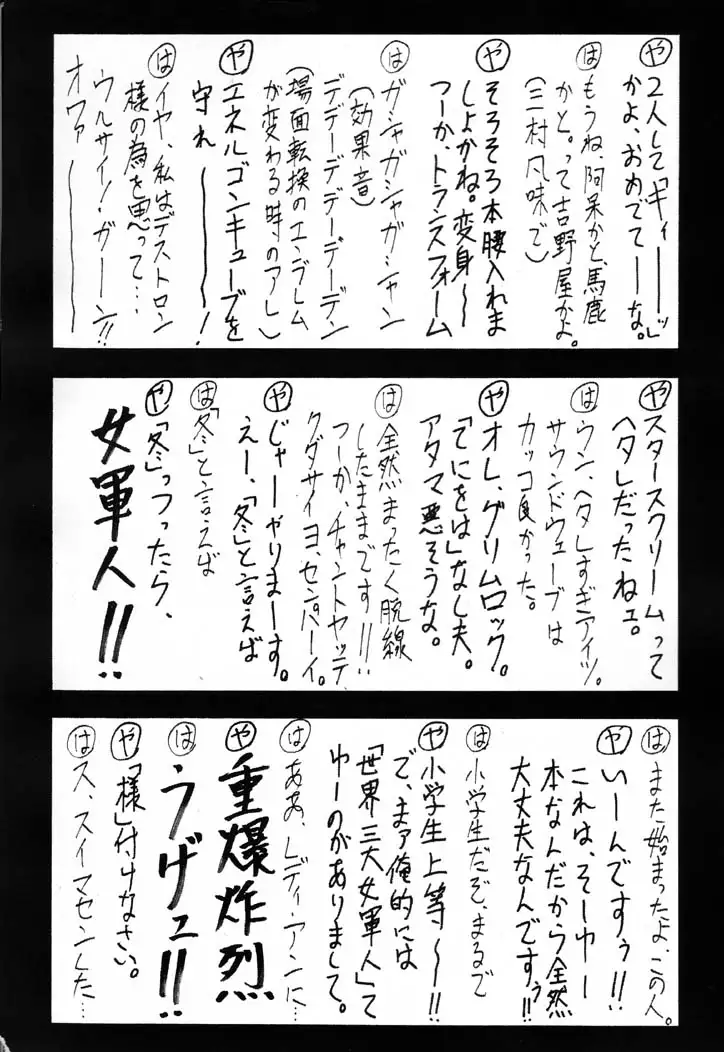 や 2人して「ギィーーーッ」
かよ、おめでてーーな。
は もうね、阿呆かと、馬鹿
かと。って吉野屋かよ。
(三村風味で)
や そろそろ本腰入れま
しよかね。変身〜〜
つーか、トランスフォーム
は ガシャガシャガシャン
(効果音)
デデデーデデデーデーデン
(場面転換のエンブレム
が変わる時のアレ)
や エネルゴンキューブを
守れーーーー!
は イヤ、私はデストロン
様の為を思って…
ウルサイ!・ガーーン!!
オワァーーーー
や スタースクリームって
ヘタレだったねェ。
は ウン、ヘタレすぎアイツ。
サウンドウェーブは
カッコ良かった。
や オレ、グリムロック。
「てにをは」なし夫。
アタマ悪そうな。
は 全然まったく脱線
したままです!!!
つーか、チャントヤッテ
クダサイヨ、センパーイ。
や じゃーやりまーす。
えー、「冬」と言えば
は 「冬」と言えば
や 「冬」っつったら、
女軍人!!
は また始まったよ、この人。
や いーんですぅ!!
これは、そーゆー
本なんだから全然
大丈夫なんですぅ!!
は 小学生だぞ、まるで
や 小学生上等〜〜!!
で、まァ俺的には
「世界三大女軍人」て
ゆーのがありまして。
は ああ、レディ・アンに…
や 重爆炸烈
は うげェ!!
や 「様」付けなさい。
は ス、スイマセンした…